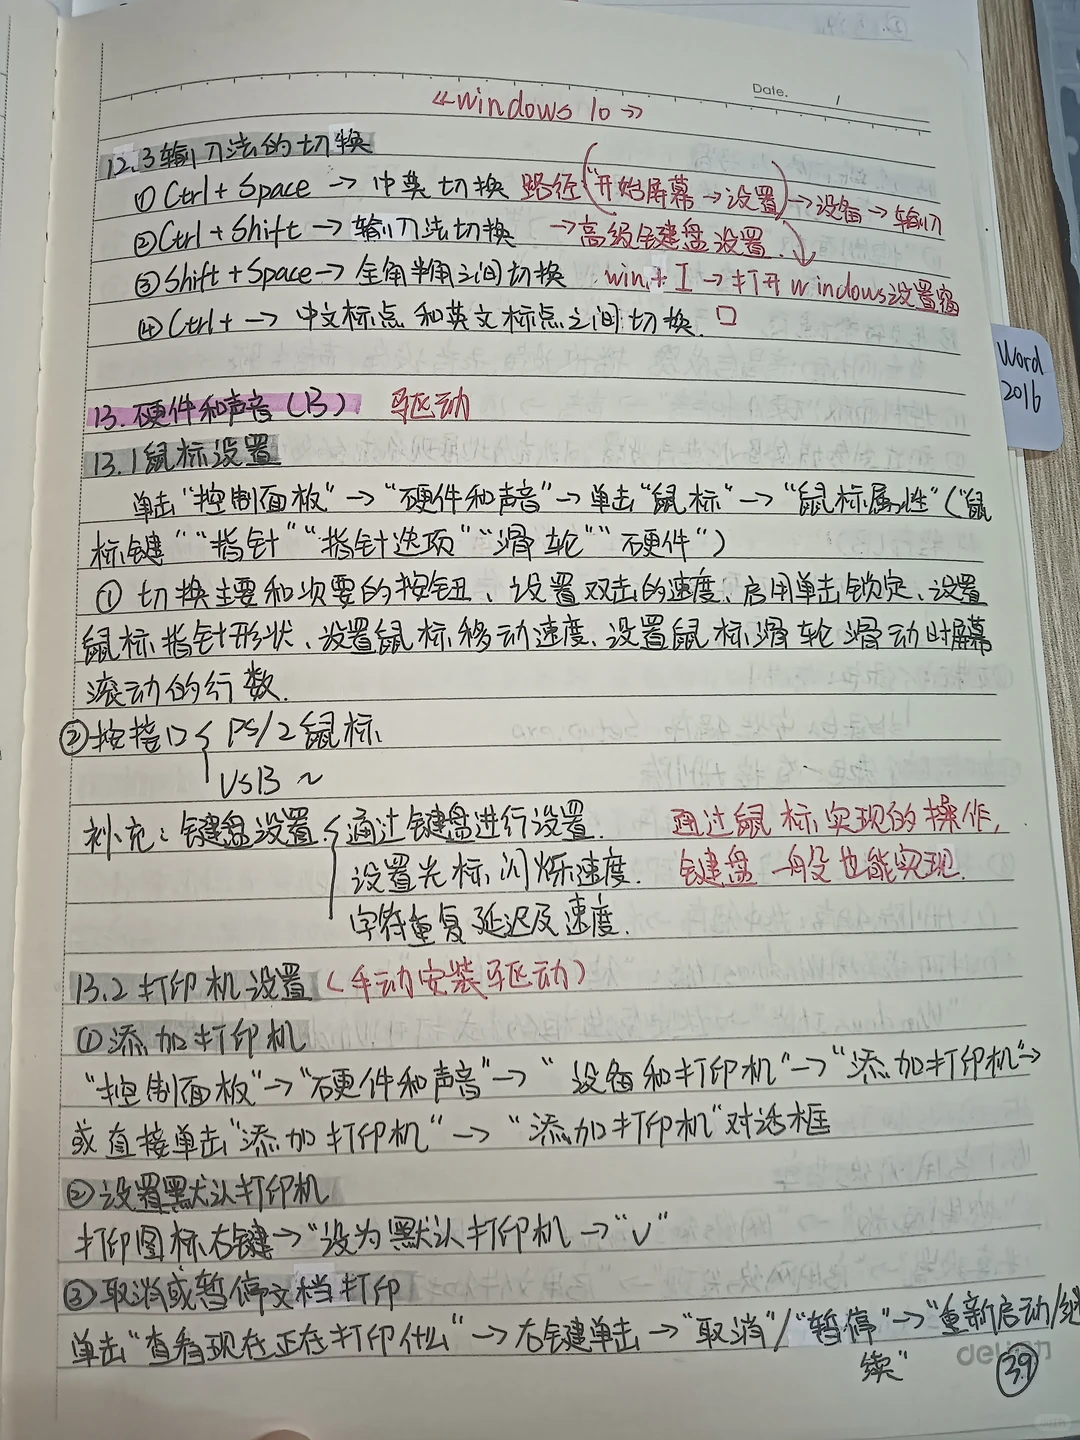 Date. /
《windows 10》
12.3 输入法的切换
① Ctrl + Space → 中英切换 路径("开始屏幕→设置)→设备→输入
② Ctrl + Shift → 输入法切换 →高级键盘设置.
③ Shift + Space → 全角半角之间切换 win + I → 打开windows设置窗
④ Ctrl + → 中文标点和英文标点之间切换. 口
Word
2016
13. 硬件和声音(B) 驱动
13.1 鼠标设置
单击"控制面板"→"硬件和声音"→单击"鼠标"→"鼠标属性"("鼠
标键""指针""指针选项""滑轮""硬件")
① 切换主要和次要的按钮、设置双击的速度、启用单击锁定、设置
鼠标指针形状、设置鼠标移动速度、设置鼠标滑轮滑动时屏幕
滚动的行数.
② 按接口 PS/2鼠标
USB ~
补充:键盘设置 通过键盘进行设置. 通过鼠标实现的操作,
设置光标闪烁速度. 键盘一般也能实现.
字符重复延迟及速度.
13.2 打印机设置(手动安装驱动)
① 添加打印机
"控制面板"→"硬件和声音"→"设备和打印机"→"添加打印机"→
或直接单击"添加打印机"→"添加打印机"对话框
② 设置默认打印机
打印图标右键→"设为默认打印机→"√"
③ 取消或暂停文档打印
单击"查看现在正在打印什么"→右键单击→"取消"/"暂停"→"重新启动/继
续"
39